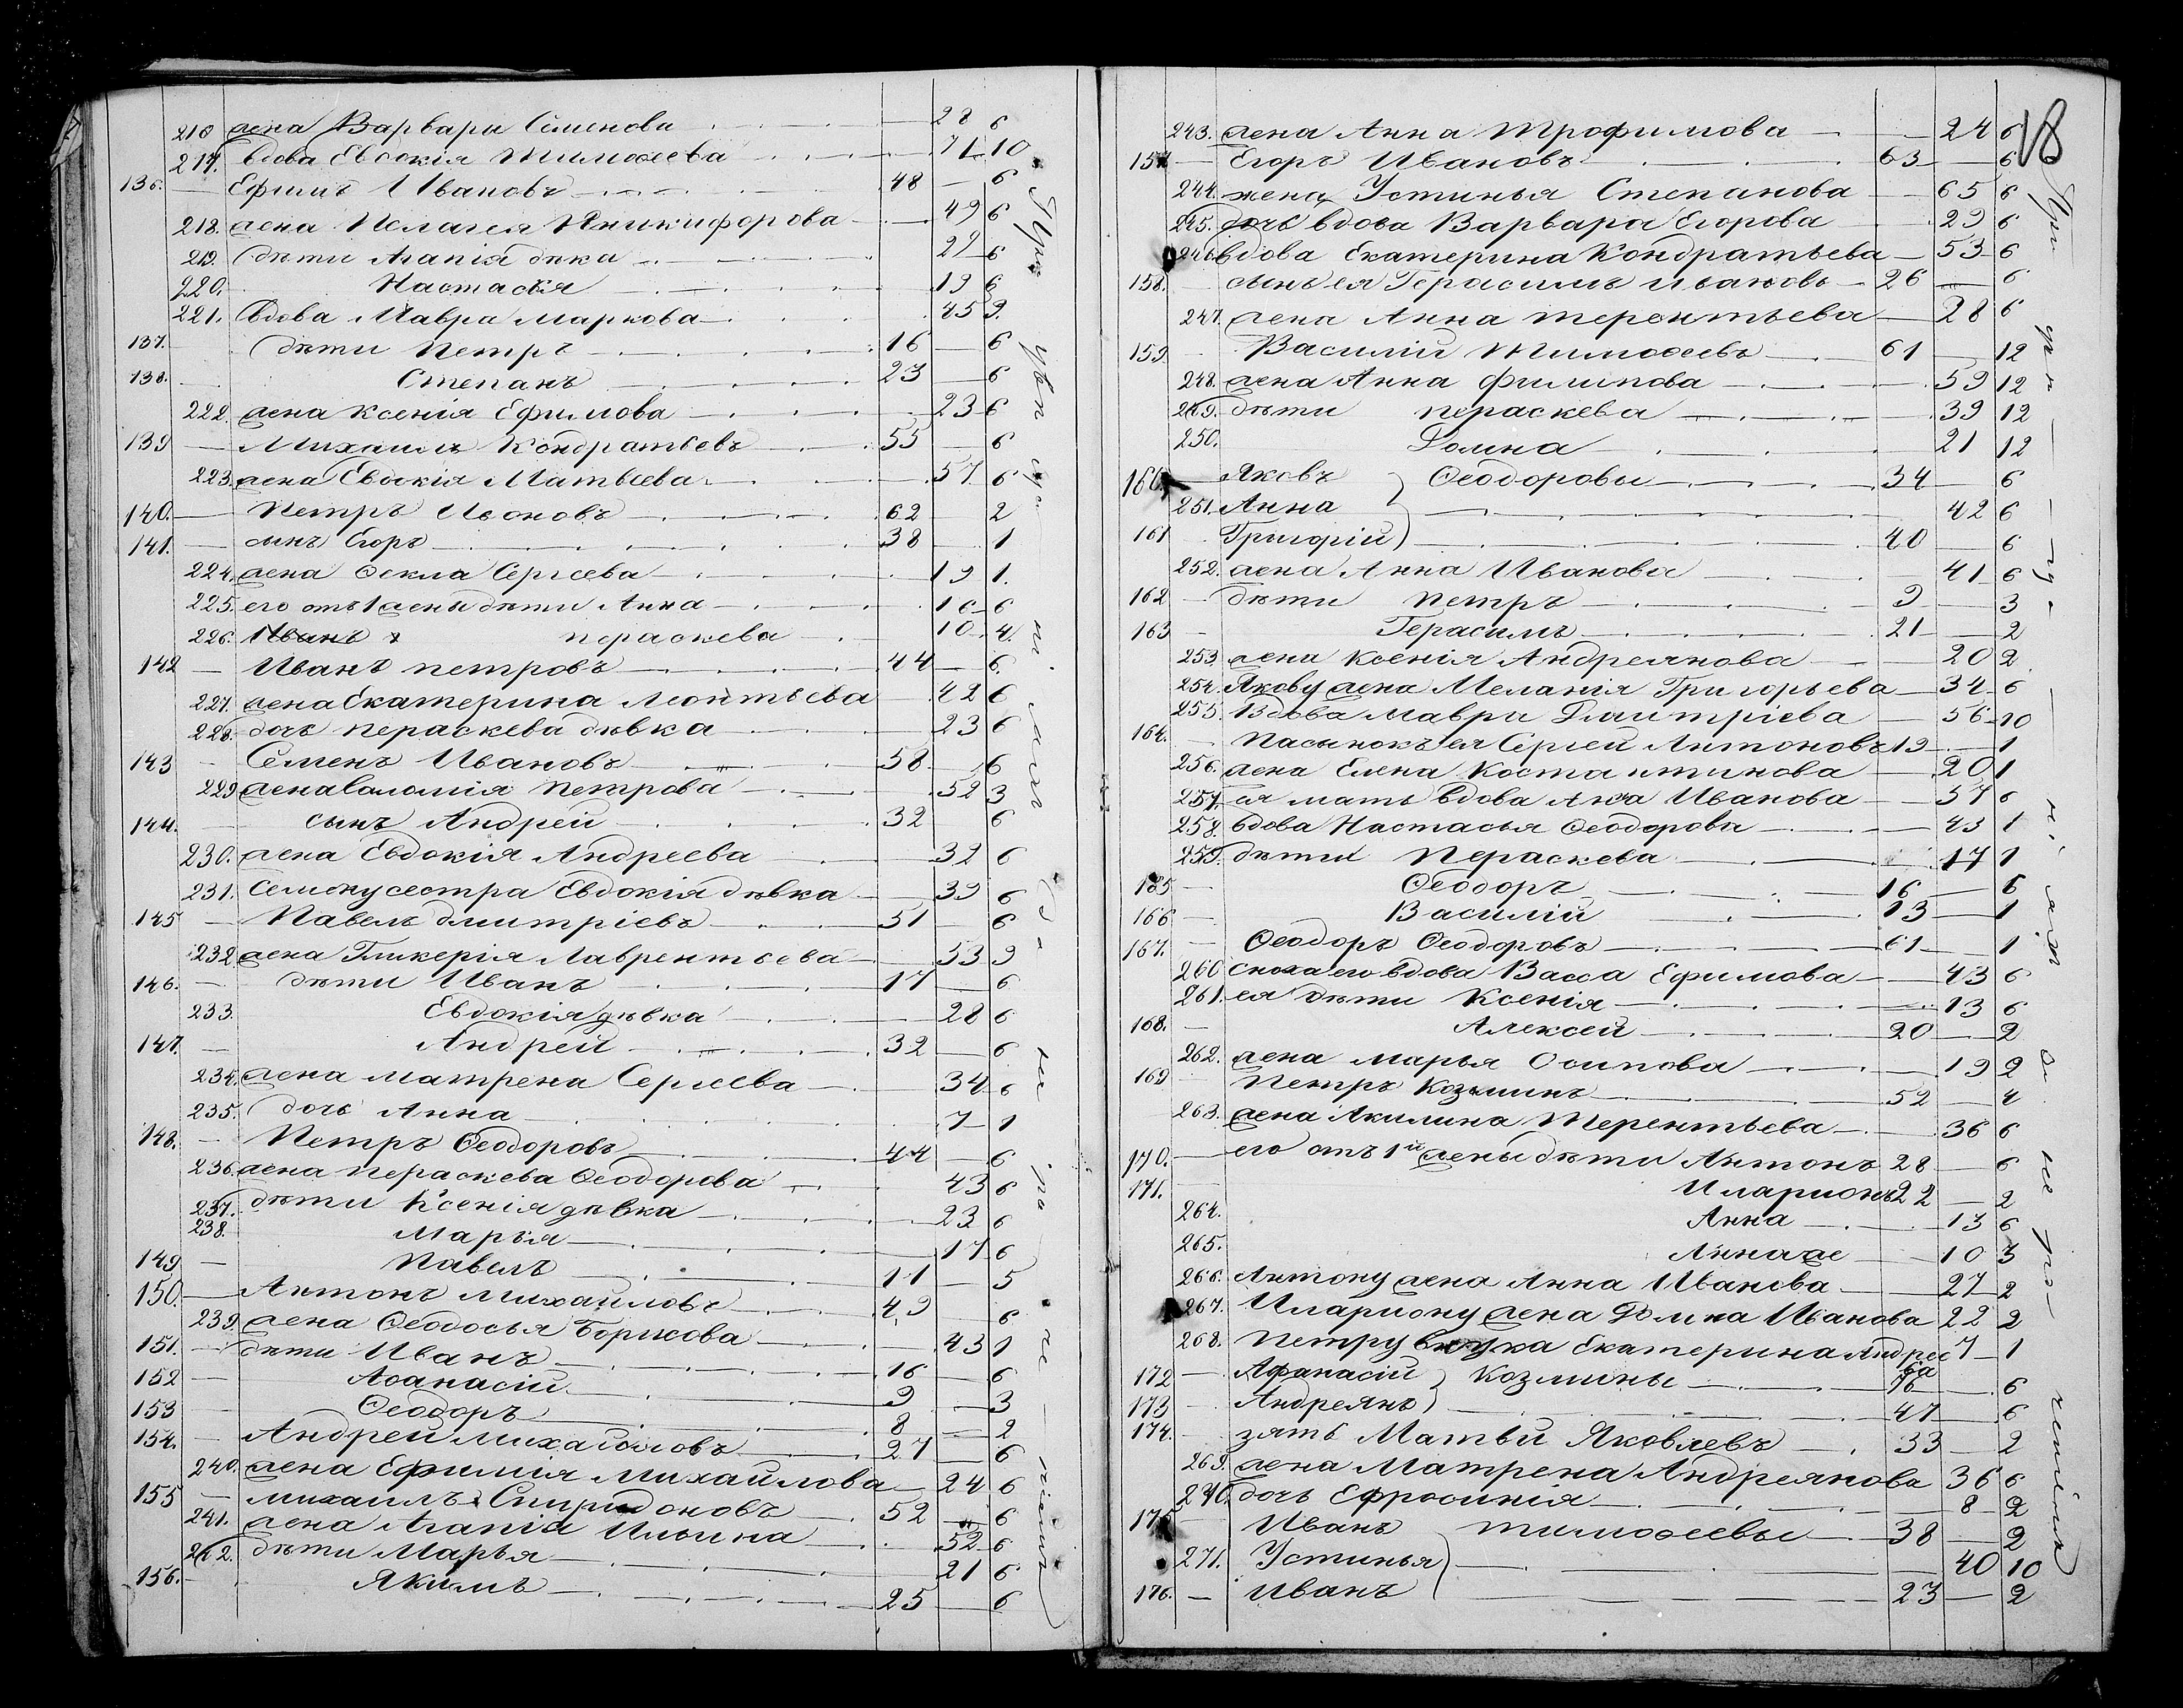 216 жена Варвара Семенова 28 6
217. вдова Евдокія Тимоѳеева 71 10
136. Ефимъ Ивановъ 48 6
218. жена Пелагея Никифорова 49 6
219. дѣти Агапія дѣвка 6
220. Настасья 19 6
221. вдова Мавра Маркова 45 9
137. дѣти Петръ 16 6
138. Степанъ 23 6
222. жена Ксенія Ефимова 23 6
139 Михаилъ Кондратьевъ 55 6
223. жена Евдокія Матвѣева 57 6
140. Петръ 62 2
141. сынъ Егоръ 38 1
224. жена Ѳекла Сергѣева 19 1.
225. его отъ 1 жены дѣти Анна 16 6
226. Иванъ пераскева 10 4.
142 Иванъ петровъ 44 6.
227. жена Екатерина Леонтьева 42 6
228. дочь пераскева дѣвка 23 6
143 Семенъ Ивановъ 58 6
229 жена Соломія Петрова 52 3
144. сынъ Андрей 32 6
230. жена Евдокія Андреева 32 6
231. Семену сестра Евдокія дѣвка 39 6
145 Павелъ дмитріевъ 51 6
232 жена Гликерія Лаврентьева 53 9
146. дѣти Иванъ 17 6
233. Евдокія дѣвка 28 6
147. Андрей 32 6
234. жена матрена Сергеева 34 6
235. дочь Анна 7 1
148. Петръ Ѳеодоровъ 44 6
236. жена пераскева Ѳеодорова 43 6
237. дѣти Ксенія дѣвка 23 6
238. Марья 17 6
149 Павелъ 11 5
150. Антонъ михайловъ 49 6
239. жена Ѳеодосья Борисова 43 1
151. дѣти Иванъ 16 6
152 Аѳанасій 9 3
153 Ѳеодоръ 8 2
154. Андрей михайловъ 27 6
240. жена Ефимія михайлова 24 6
155 михаилъ Спиридоновъ 52 6
241. жена Агапія Ильина 52 6
242. дѣти Марья 21 6
156. Якимъ 25 6
18
243. жена Анна Трофимова 24 6
157 Егоръ Ивановъ 63 6
244. жена Устинья Степанова 65 6
245. дочь вдова Варвара Егорова 29 6
246 вдова Екатерина Кондратьева 53 6
158. сынъ ея Герасимъ ивановъ 26 6
247. жена Анна терентьева 28 6
159 Василій Тимоѳеевъ 61 12
248. жена Анна филипова 59 12
249. дѣти пераскева 39 12
250. Домна 21 12
160. Яковъ Ѳеодоровы 34 6
251. Анна 42 6
161 Григорій 40 6
252. жена Анна Иванова 41 6
162 дѣти петръ 9 3
163 Герасимъ 21 2
253. жена Ксенія Андреянова 20 2
254. Якову жена Меланія Григорьева 34 6
255. Вдова мавра Дмитріева 56 10
164. Пасынокъ ея Сергей Антоновъ 19 1
256. жена Елена Костантинова 20 1
257. ея мать вдова Анна Иванова 57 6
258. вдова Настасья Ѳеодорова 43 1
259. дѣти Пераскева 17 1
165 Ѳеодоръ 16 6
166 Василій 13 1
167. Ѳеодоръ Ѳеодоровъ 61 1
260 сноха его вдова Васса Ефимова 43 6
261. ея дѣти Ксенія 13 6
168. Алексей 20 2
262. жена марья Осипова 19 2
169 Петръ Козминъ 52 4
263. жена Акилина Терентьева 36 6
170. его отъ 1й жены дѣти Антонъ 28 6
171. Иларионъ 22 2
264. Анна 13 6
265. Анна же 10 3
266. Антону жена Анна Иванова 27 2
267. Илариону жена Домна Иванова 22 2
268. Петру внука Екатерина Андрее 7 1
ва
172 Афанасій Козмины 6
173 Андреянъ 47 6
174. зять Матвѣй Яковлевъ 33 2
269. жена Матрена Андреянова 36 6
270. дочь Ефросинія 8 2
175 Иванъ тимоѳеевы 38 2
271. Устинья 40 10
176. Иванъ 23 2